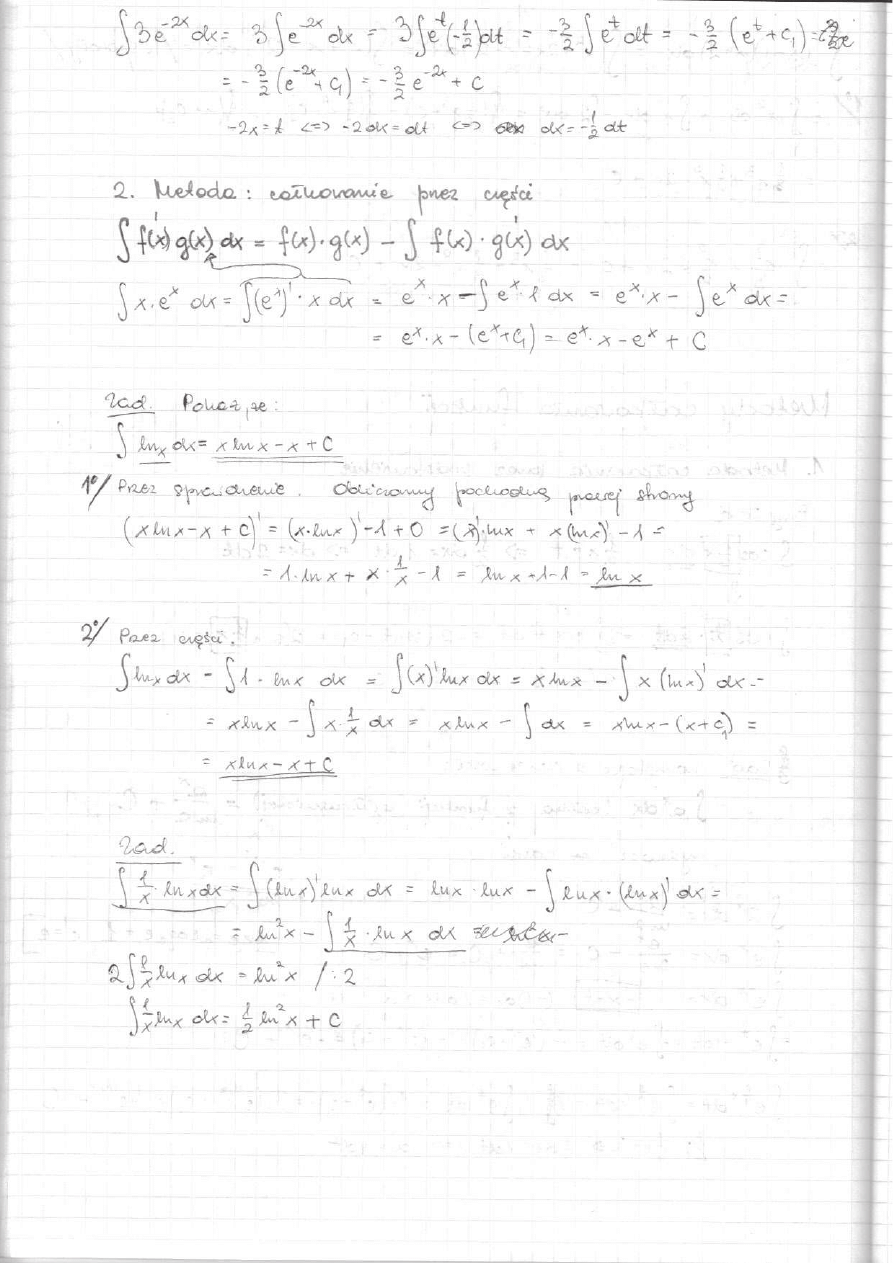 ∫3e^{-2x} dx = 3∫e^{-2x} dx = 3∫e^t(-1/2)dt = -3/2 ∫e^t dt = -3/2 (e^t + C₁) =
= -3/2 (e^{-2x} + C₁) = -3/2 e^{-2x} + C
-2x = t <=> -2dx = dt <=> dx = -1/2 dt
2. Metoda: całkowanie przez części
∫f'(x) g(x) dx = f(x)·g(x) - ∫ f(x)·g'(x) dx
∫x·e^x dx = ∫(e^x)'·x dx = e^x·x - ∫e^x·1 dx = e^x·x - ∫e^x dx =
= e^x·x - (e^x + C₁) = e^x·x - e^x + C
Zad. Pokaż, że:
∫ ln x dx = x ln x - x + C
1°/ Przez sprawdzenie. Obliczamy pochodną prawej strony
(x ln x - x + C)' = (x·ln x)' - 1 + 0 = (x)'·ln x + x(ln x)' - 1 =
= 1·ln x + x·1/x - 1 = ln x + 1 - 1 = ln x
2°/ Przez części.
∫ln x dx = ∫1·ln x dx = ∫(x)' ln x dx = x ln x - ∫x (ln x)' dx =
= x ln x - ∫x·1/x dx = x ln x - ∫dx = x ln x - (x + C₁) =
= x ln x - x + C
Zad.
∫1/x·ln x dx = ∫(ln x)' ln x dx = ln x·ln x - ∫ln x·(ln x)' dx =
= ln²x - ∫1/x·ln x dx
2∫1/x ln x dx = ln²x /:2
∫1/x ln x dx = 1/2 ln²x + C